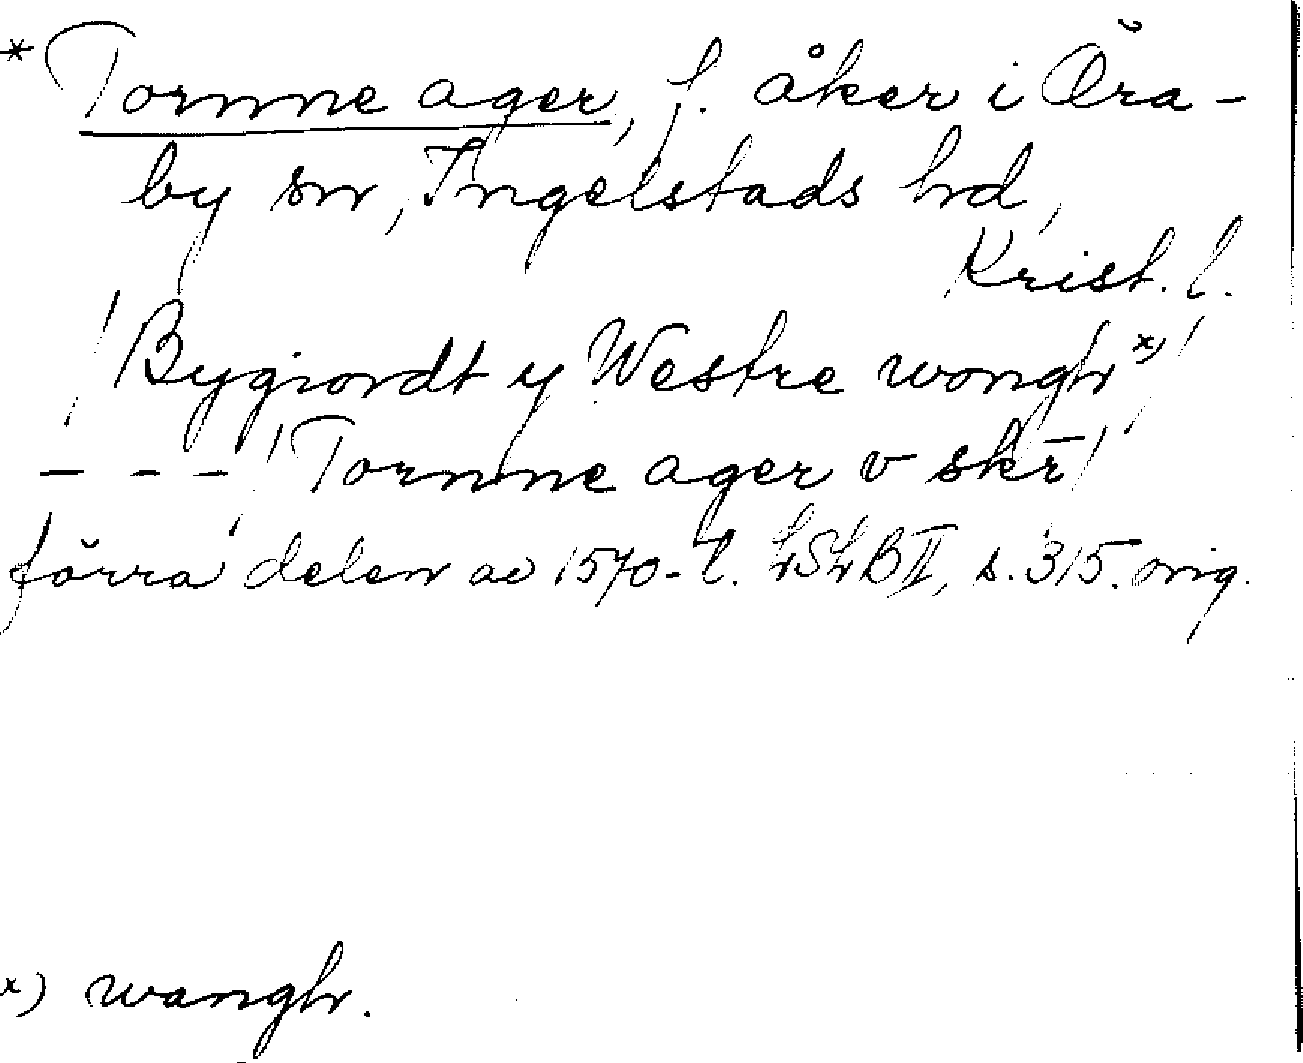 * Tornne ager, f. åker i Öra-
by sn, Ingelstads hd,
Krist. l.
/ Bygiordt y Westre wongh x) /
- - - / Tornne ager v skr̄ /
förra delen av 1570-t. LSLB II, s. 315. orig.
x) wangh.